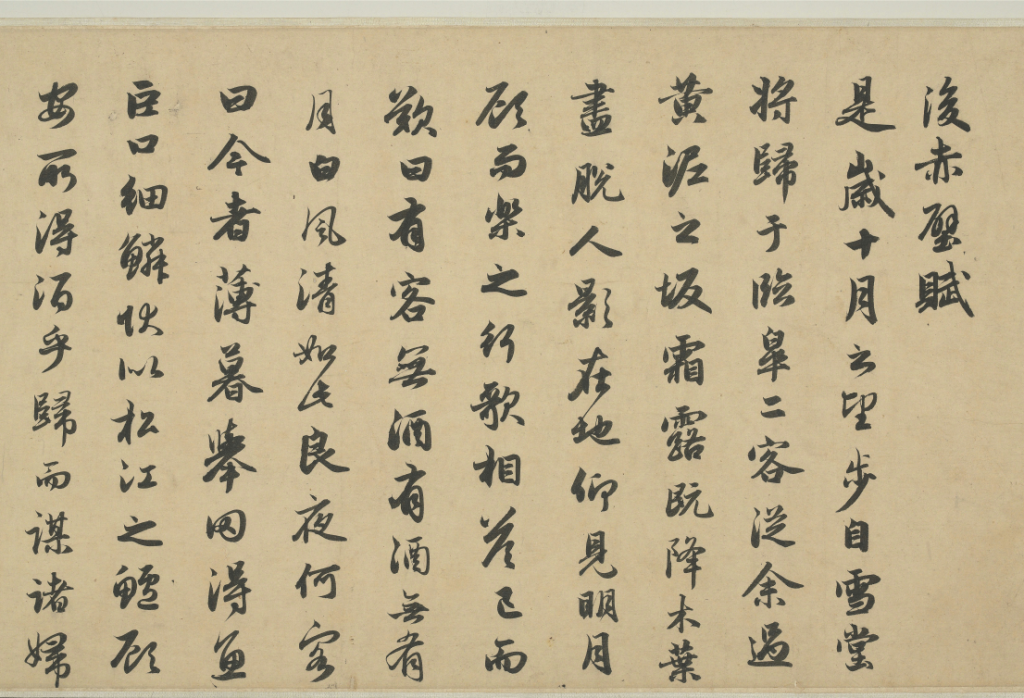 後赤壁賦
是歲十月之望步自雪堂
將歸于臨皋二客從余過
黃泥之坂霜露既降木葉
盡脫人影在地仰見明月
顧而樂之行歌相答已而
歎曰有客無酒有酒無肴
月白風清如此良夜何客
曰今者薄暮舉网得魚
巨口細鱗狀似松江之鱸顧
安所得酒乎歸而謀諸婦